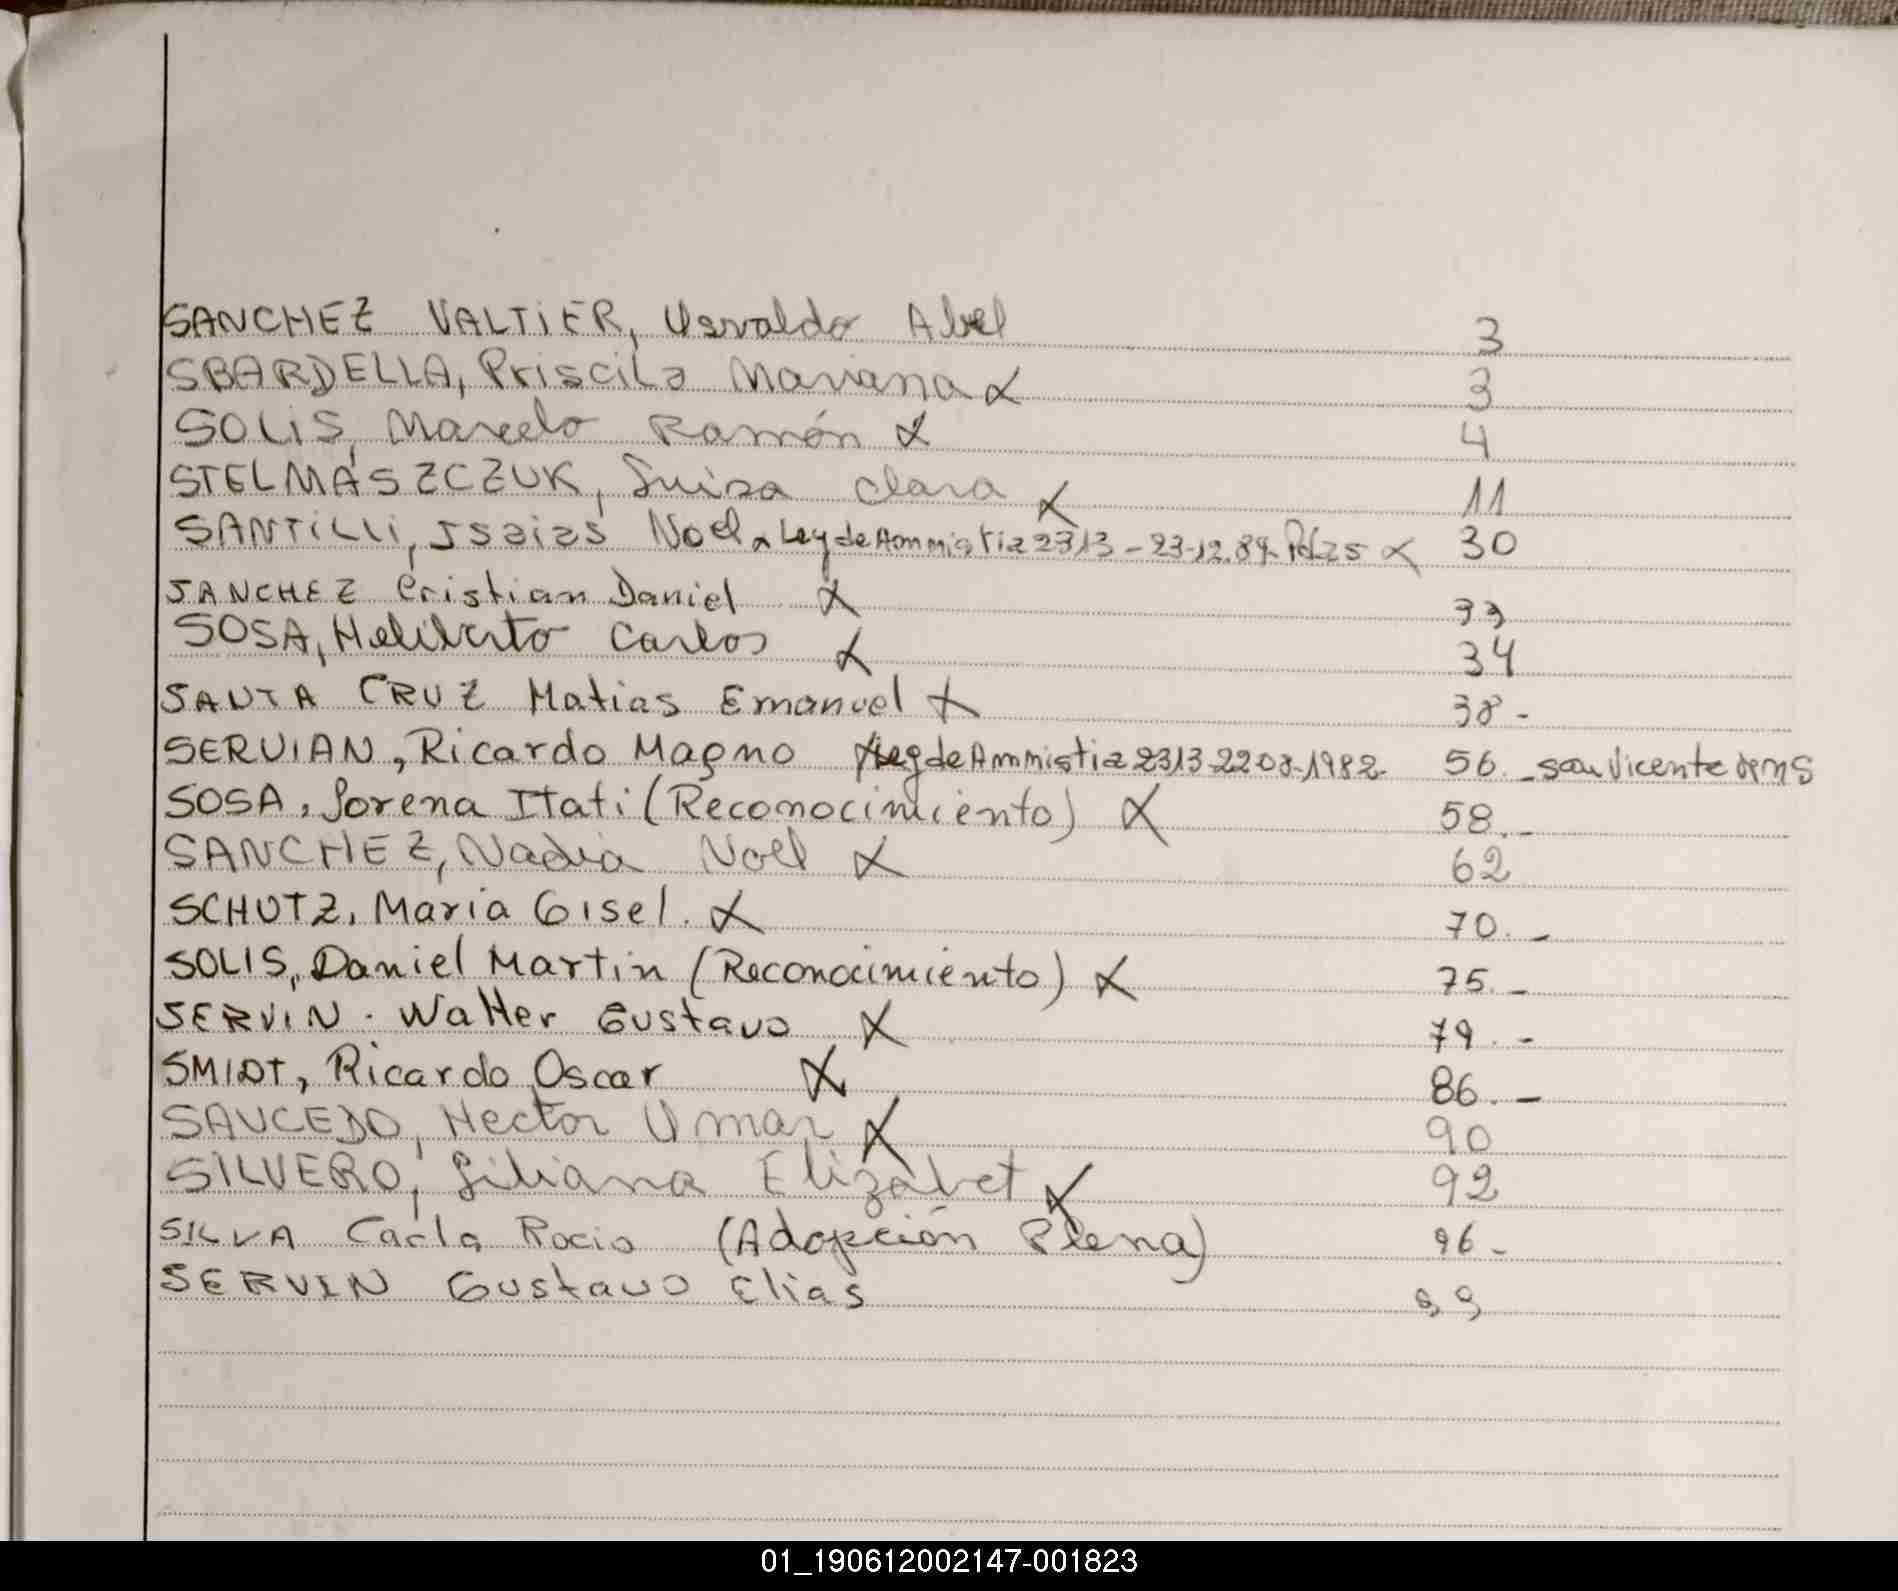 SANCHEZ VALTiER, Usvaldo Abel 3
SBARDELLA, Priscila Mariana X 3
SOLiS, Marcelo Ramón X 4
STELMASZCZUK, Luisa Clara X 11
SANTiLLi, Isaias Noel Ley de Ammistia 2313 - 23-12.89 X 30
SANCHEZ Cristian Daniel X 33
SOSA, Heliberto Carlos X 34
SANTA CRUZ Matias Emanuel X 38-
SERVIAN, Ricardo Magno Ley de Ammistia 2313 1982- 56.- San Vicente
SOSA, Lorena Itati (Reconocimiento) X 58.-
SANCHEZ, Nadia Noel X 62
SCHUTZ, Maria Gisel. X 70.-
SOLIS, Daniel Martin (Reconocimiento) X 75.-
SERVIN. Walter Gustavo X 79.-
SMIDT, Ricardo Oscar X 86.-
SAUCEDO, Hector Omar X 90
SILVERO, Liliana Elizabet X 92
SILVA Carla Rocio (Adopción Plena) 96-
SERVIN Gustavo Elias 99
01_190612002147-001823